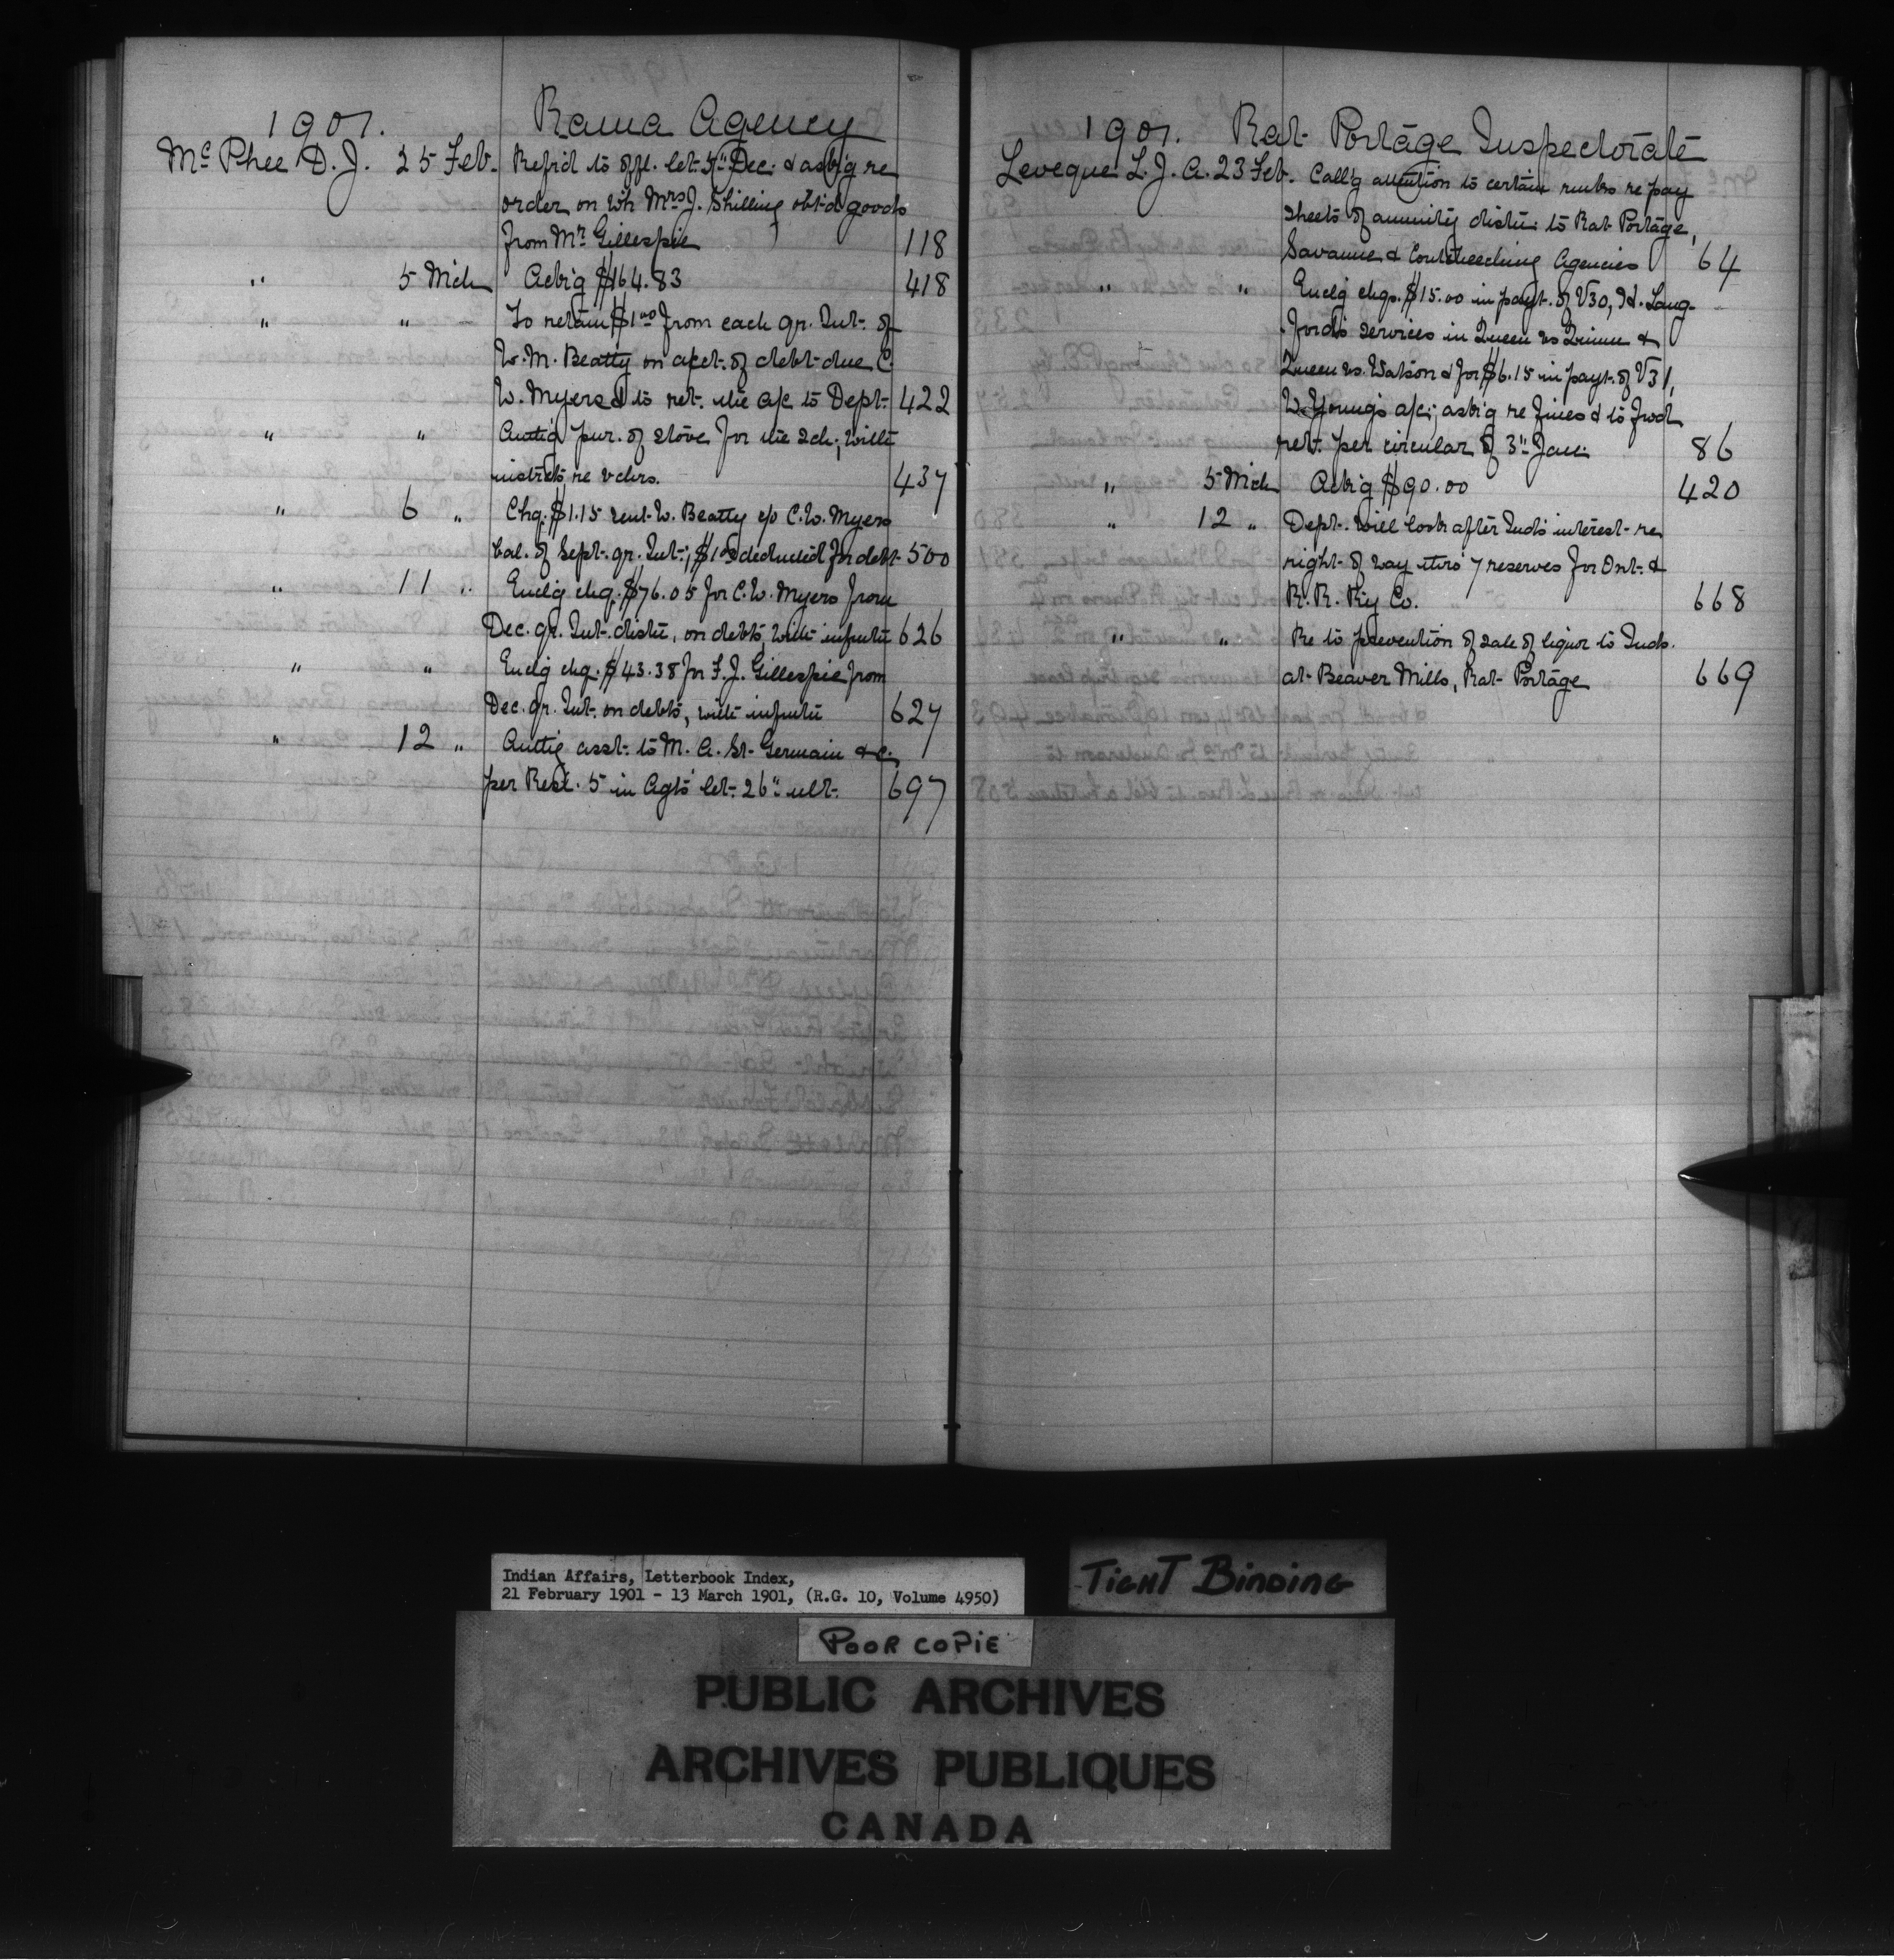 1901. Rama Agency
McPhee D. J. 25 Feb. Ref'd to offl. let. 5" Dec. & ask'g re
order on wh Mrs J. Shilling obt'd goods
from Mr Gillespie 118
" 5 Mch Ackg $164.83 418
" " To retain $1.00 from each qr. Int. of
W. M. Beatty on acct. of debt due C.
W. Myers & to ret. the a/c to Dept. 422
" " Authg pur. of stove for the sch; with
instrcts re vchrs. 437
" 6 " Chq. $1.15 sent W. Beatty c/o C. W. Myers
bal. of Sept. qr. Int.; $1.00 deducted for debt 500
" 11 " Enclg chq. $76.05 for C. W. Myers from
Dec. qr. Int. distn, on debts, with 626
" " Enclg chq. $43.38 for F. J. Gillespie from
Dec. qr. Int. on debts, with 627
" 12 " Authg asst. to M. A. St. Germain &c.
per Resl. 5 in Agts' let. 26" ult. 697
1901. Rat Portage Inspectorate
Leveque L. J. A. 23 Feb. Call'g attention to certain re pay
sheets of annuity distn. to Rat Portage,
Savanne & Coutcheeching Agencies 64
" " Enclg chqs. $15.00 in payt. of V30, H. Lang-
ford's services in Queen vs Quinn &
Queen vs. Watson & for $6.15 in payt. of V31,
W. Young's a/c; ask'g re fines & to fwd
ret. per circular of 3" Jan. 86
" 5 Mch Ackg $90.00 420
" 12 " Dept. will look after Inds interest re
right of way thro' 7 reserves for Ont. &
R. R. Ry Co. 668
" " Re to prevention of sale of liquor to Inds.
at Beaver Mills, Rat Portage 669
Indian Affairs, Letterbook Index,
21 February 1901 - 13 March 1901, (R.G. 10, Volume 4950)
TIGHT BINDING
POOR COPIE
PUBLIC ARCHIVES
ARCHIVES PUBLIQUES
CANADA